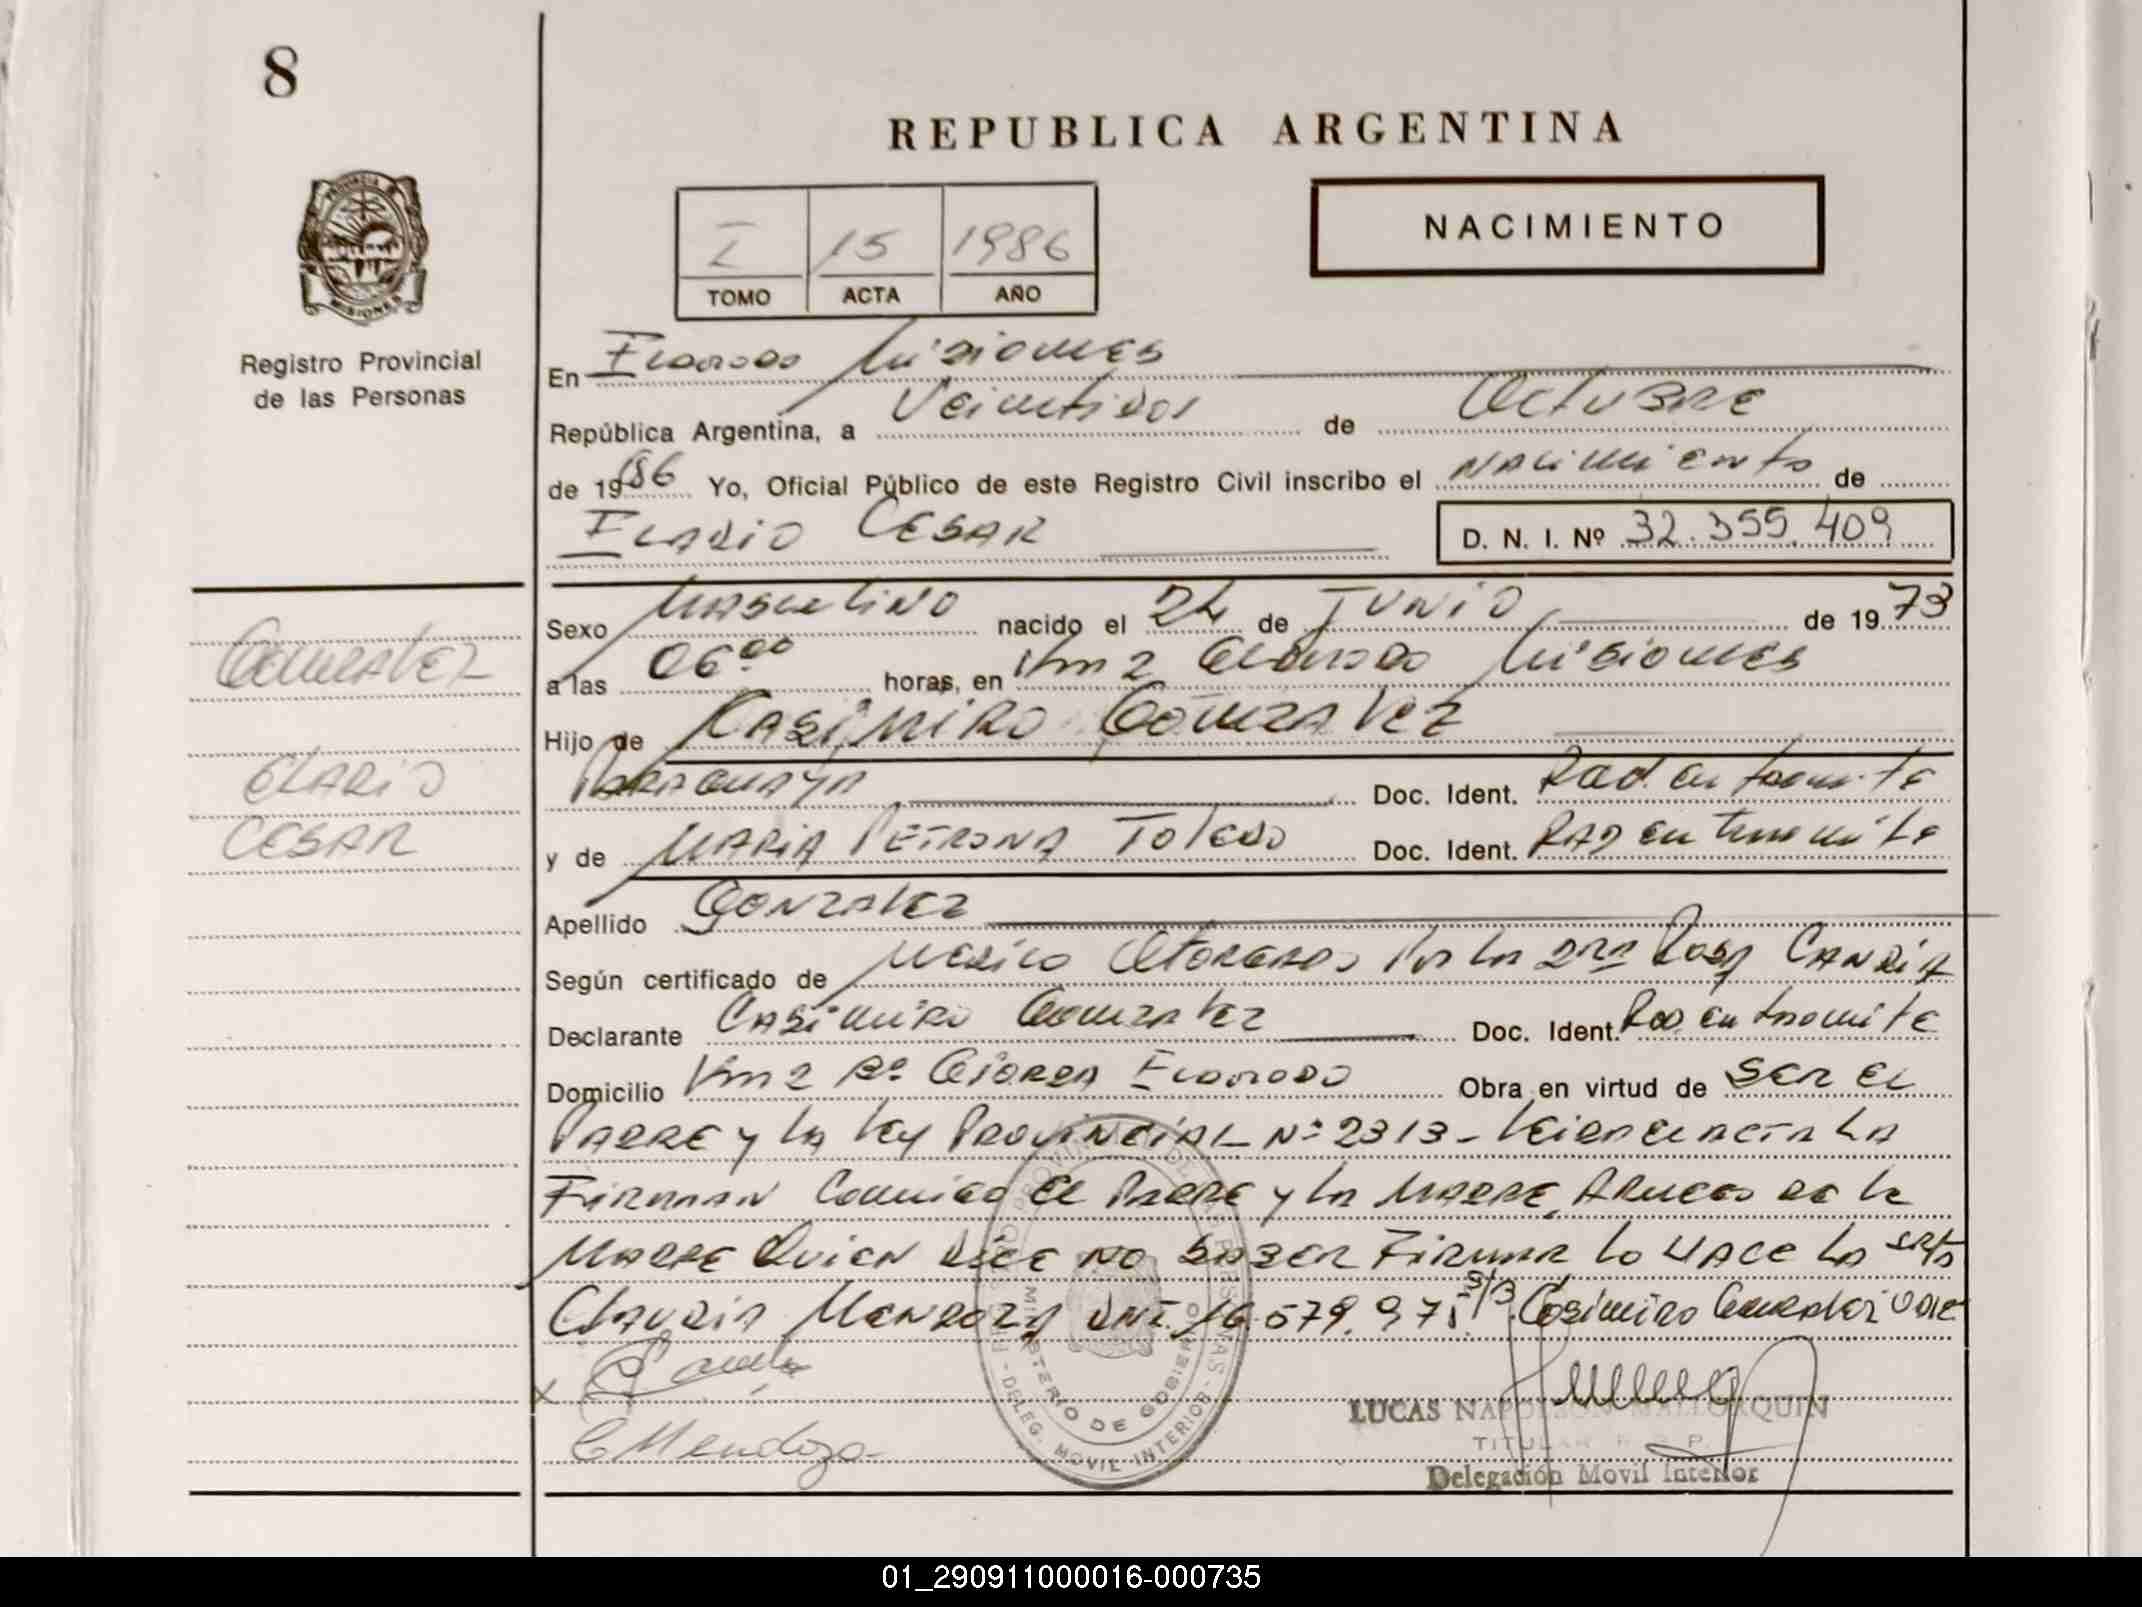 8
REPUBLICA ARGENTINA
PROVINCIA DE
MISIONES
Registro Provincial
de las Personas
I 15 1986
TOMO ACTA AÑO
NACIMIENTO
En Eldorado Misiones
República Argentina, a Veintidos de Octubre
de 1986 Yo, Oficial Público de este Registro Civil inscribo el nacimiento de
ELADIO CESAR D. N. I. Nº 32.355.409
Sexo Masculino nacido el 24 de JUNIO de 1973
a las 06 00 horas, en Km 2 Eldorado Misiones
Hijo de CASIMIRO GONZALEZ
Paraguaya Doc. Ident. Rad en tramite
y de MARIA PETRONA TOLEDO Doc. Ident. RAD en tramite
Apellido GONZALEZ
Según certificado de Medico Otorgado Por la Dra Rosa CANDIA
Declarante Casimiro Gonzalez Doc. Ident. Rad. en tramite
Domicilio Km 2 Eldorado Obra en virtud de SER EL
PADRE y LA Ley PROVINCIAL Nº 2313 - Leida el ACTA LA
FIRMAN Conmigo el PADRE y la MADRE, A RUEGO de la
MADRE Quien dice NO SABER FIRMAR lo HACE LA SRTA
CLAUDIA MENDOZA DNI. 16.579.975 S/B. Casimiro Gonzalez Vale
GONZALEZ
ELADIO
CESAR
REGISTRO PROVINCIAL DE LAS PERSONAS
MINISTERIO DE GOBIERNO
- DELEG. MOVIL INTERIOR -
CMendoza
LUCAS NAPOLEON MALLORQUIN
TITULAR R. P.
Delegación Movil Interior
01_290911000016-000735